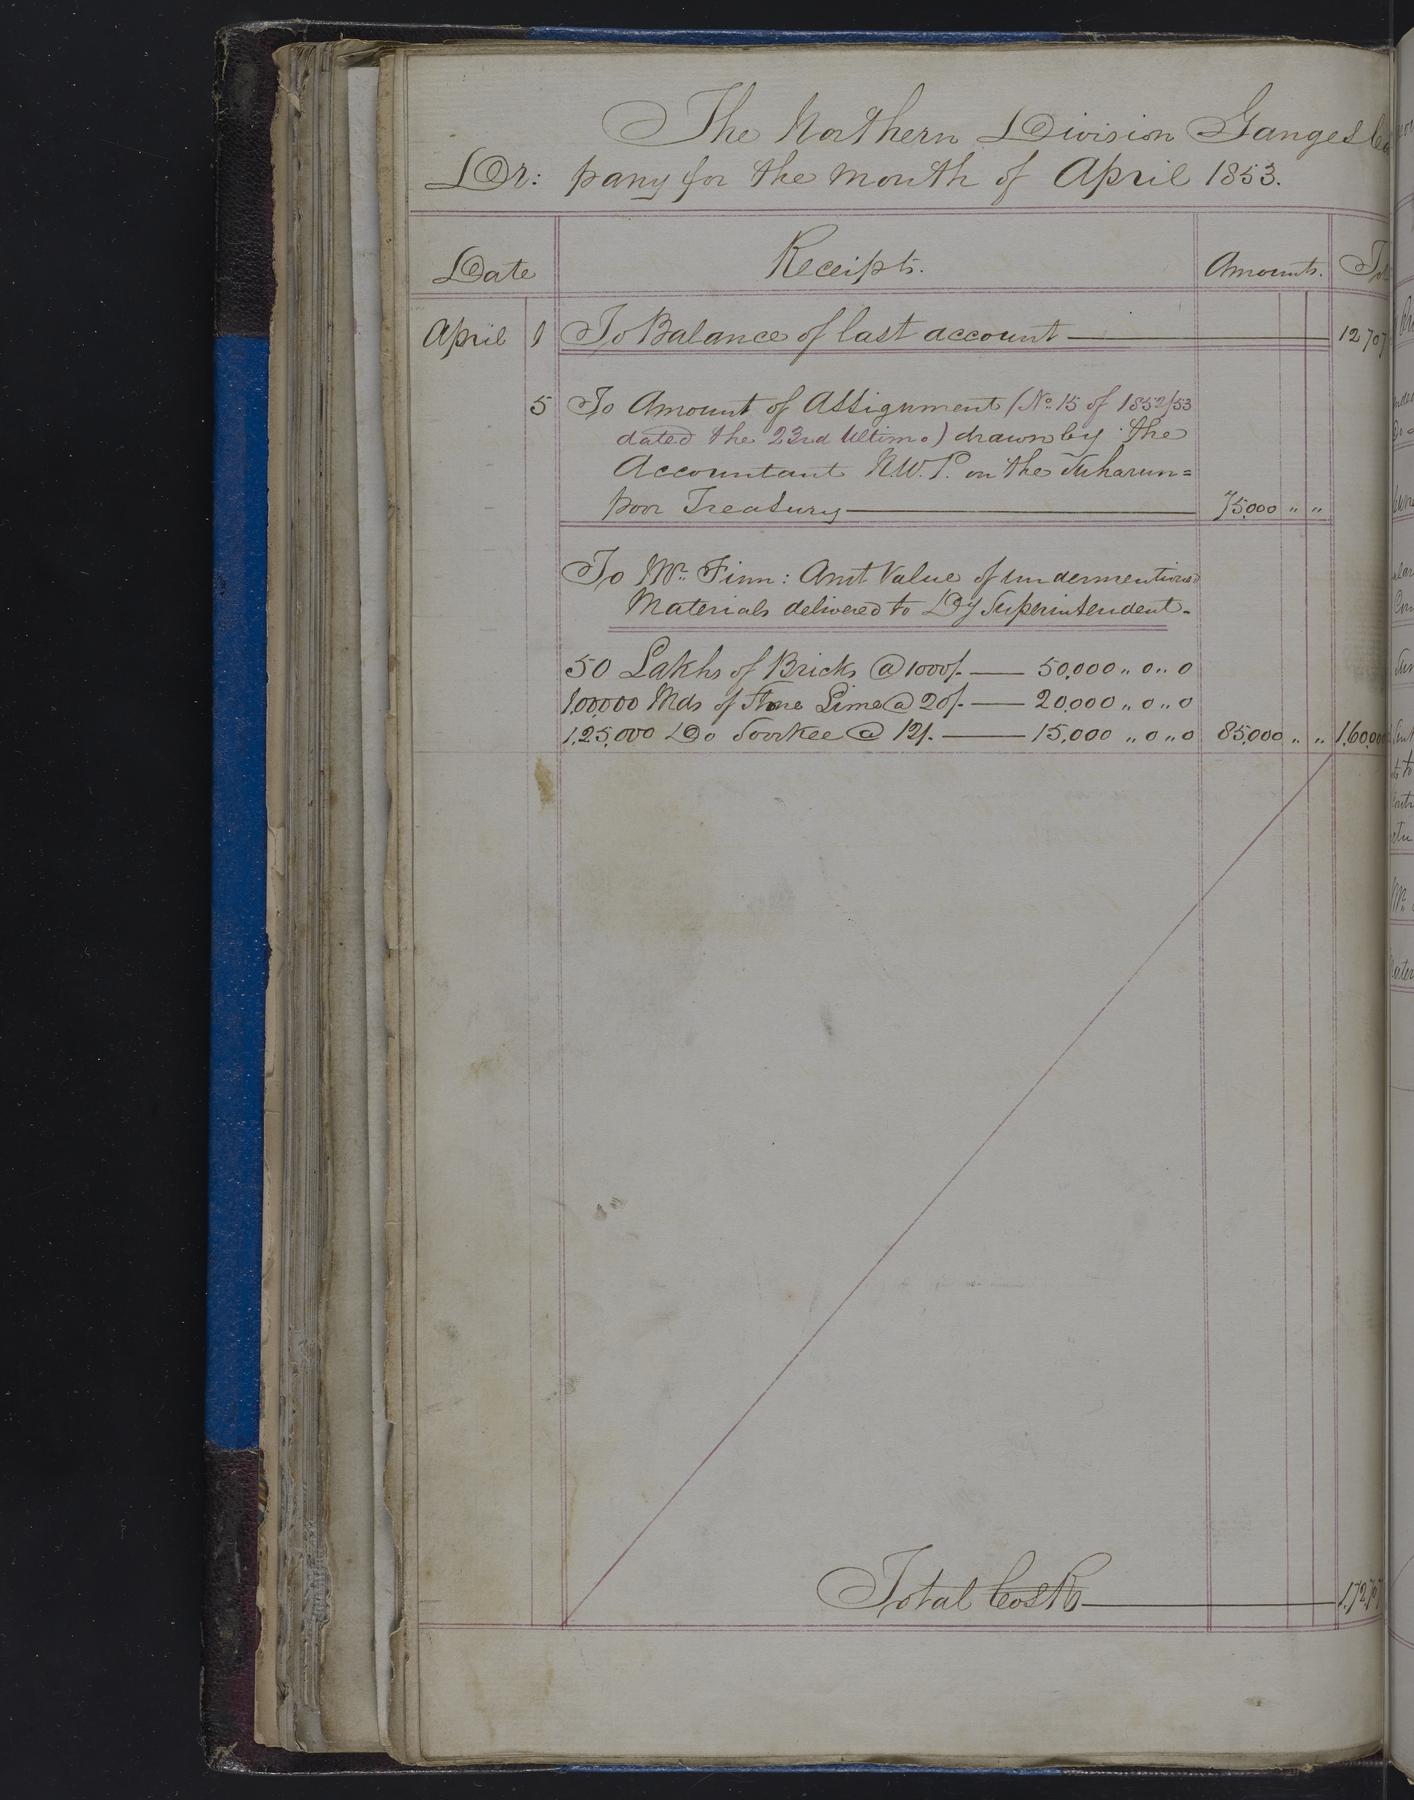 The Northern Division Ganges
Dr: pany for the month of April 1853.
Date Receipts. Amounts.
April 1 To Balance of last account 12707
5 To Amount of Assignment (No. 15 of 1852/53
dated the 23rd Ultimo) drawn by the
Accountant N.W.P. on the Suharun=
poor Treasury 75,000 " "
To Mr. Finn: Amt Value of undermentioned
Materials delivered to Dy Superintendent.
50 Lakhs of Bricks @ 1000/. 50,000 " 0 " 0
1,00,000 Mds of Stone Lime @ 20/. 20,000 " 0 " 0
1,25,000 Do Soorkee @ 12/. 15,000 " 0 " 0 85,000 " " 1,60,000
Total Co's Rs 1,72,707